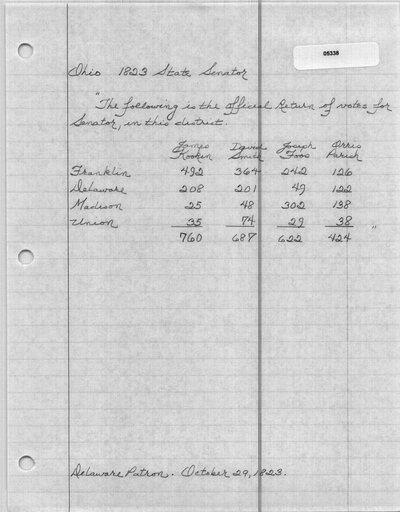 05338
Ohio 1823 State Senator
"The following is the official Return of votes for
Senator, in this district.
James Kooken David Smith Joseph Foos Orris Parish
Franklin 492 364 242 126
Delaware 208 201 49 122
Madison 25 48 302 138
Union 35 74 29 38 "
760 687 622 424
Delaware Patron. October 29, 1823.